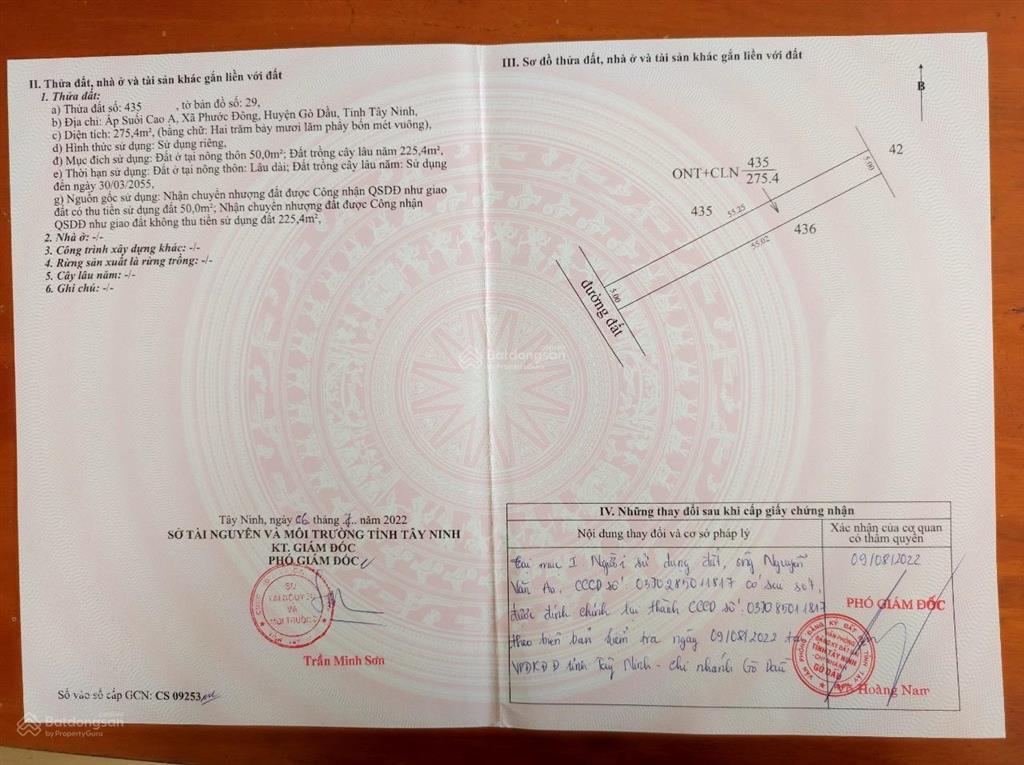 II. Thửa đất, nhà ở và tài sản khác gắn liền với đất
1. Thửa đất:
a) Thửa đất số: 435 , tờ bản đồ số: 29,
b) Địa chỉ: Ấp Suối Cao A, Xã Phước Đông, Huyện Gò Dầu, Tỉnh Tây Ninh,
c) Diện tích: 275,4m², (bằng chữ: Hai trăm bảy mươi lăm phẩy bốn mét vuông),
d) Hình thức sử dụng: Sử dụng riêng,
đ) Mục đích sử dụng: Đất ở tại nông thôn 50,0m²; Đất trồng cây lâu năm 225,4m²,
e) Thời hạn sử dụng: Đất ở tại nông thôn: Lâu dài; Đất trồng cây lâu năm: Sử dụng
đến ngày 30/03/2055,
g) Nguồn gốc sử dụng: Nhận chuyển nhượng đất được Công nhận QSDĐ như giao
đất có thu tiền sử dụng đất 50,0m²; Nhận chuyển nhượng đất được Công nhận
QSDĐ như giao đất không thu tiền sử dụng đất 225,4m²,
2. Nhà ở: -/-
3. Công trình xây dựng khác: -/-
4. Rừng sản xuất là rừng trồng: -/-
5. Cây lâu năm: -/-
6. Ghi chú: -/-
Tây Ninh, ngày 06 tháng 7.. năm 2022
SỞ TÀI NGUYÊN VÀ MÔI TRƯỜNG TỈNH TÂY NINH
KT. GIÁM ĐỐC
PHÓ GIÁM ĐỐC
SỞ
TÀI NGUYÊN
VÀ
MÔI TRƯỜNG
Trần Minh Sơn
Số vào sổ cấp GCN: CS 09253
III. Sơ đồ thửa đất, nhà ở và tài sản khác gắn liền với đất
B
42
5.00
ONT+CLN 435
275.4
435
55.25
436
55.02
5.00
đường đất
IV. Những thay đổi sau khi cấp giấy chứng nhận
Nội dung thay đổi và cơ sở pháp lý
Xác nhận của cơ quan
có thẩm quyền
Tại mục I Người sử dụng đất, ông Nguyễn
Văn CCCD số: 030285011817 có sai sót
được đính chính lại thành CCCD số:
theo biên bản kiểm tra ngày 09/08/2022
VPĐKĐĐ tỉnh Tây Ninh - chi nhánh Gò Dầu
09/08/2022
PHÓ GIÁM ĐỐC
VĂN PHÒNG
ĐĂNG KÝ ĐẤT ĐAI
TỈNH TÂY NINH
CHI NHÁNH
GÒ DẦU
Võ Hoàng Nam
Batdongsan
by PropertyGuru
Batdongsan
by PropertyGuru